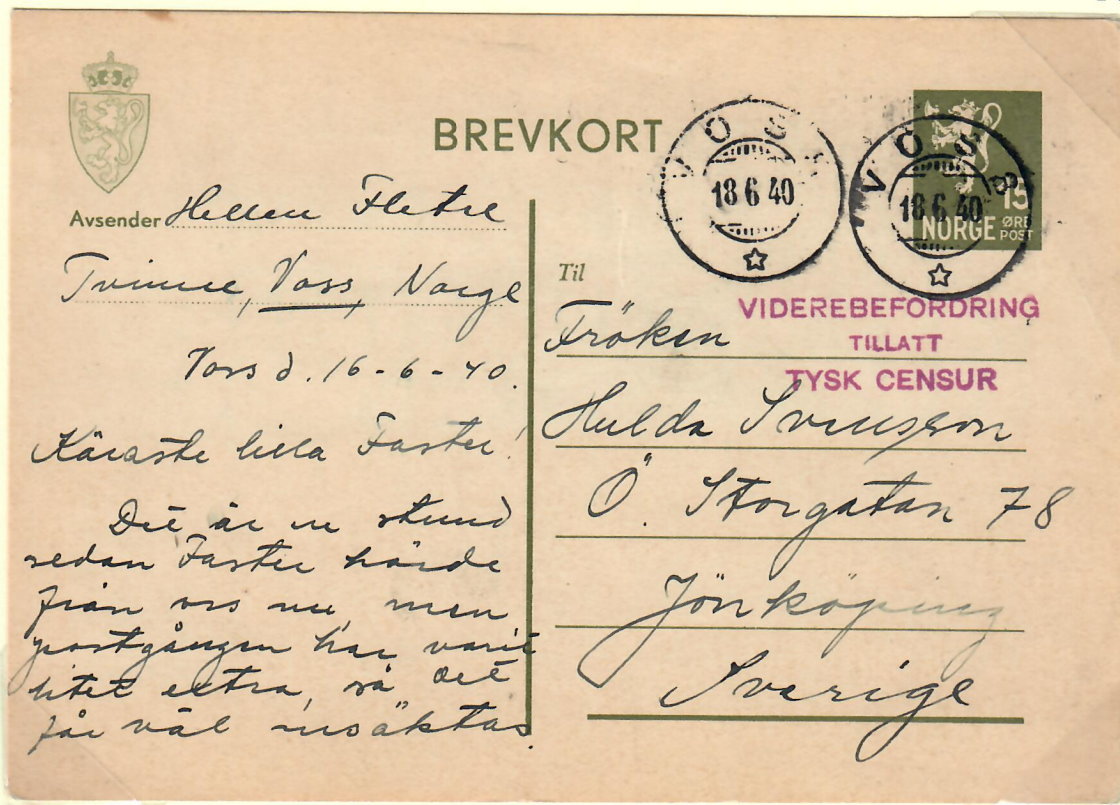 BREVKORT
VOSS
18 6 40
VOSS
18.6.40
B
15
NORGE
ØRE
POST
Avsender Hellen Fletre
Tvinne, Voss, Norge
Voss d. 16-6-40.
Käraste lilla Faster!
Det är en stund
sedan Faster hörde
från oss nu, men
postgången har varit
litet extra, så det
får väl ursäktas.
Til
VIDEREBEFORDRING
TILLATT
TYSK CENSUR
Fröken
Hulda Svensson
Ö. Storgatan 78
Jönköping
Sverige